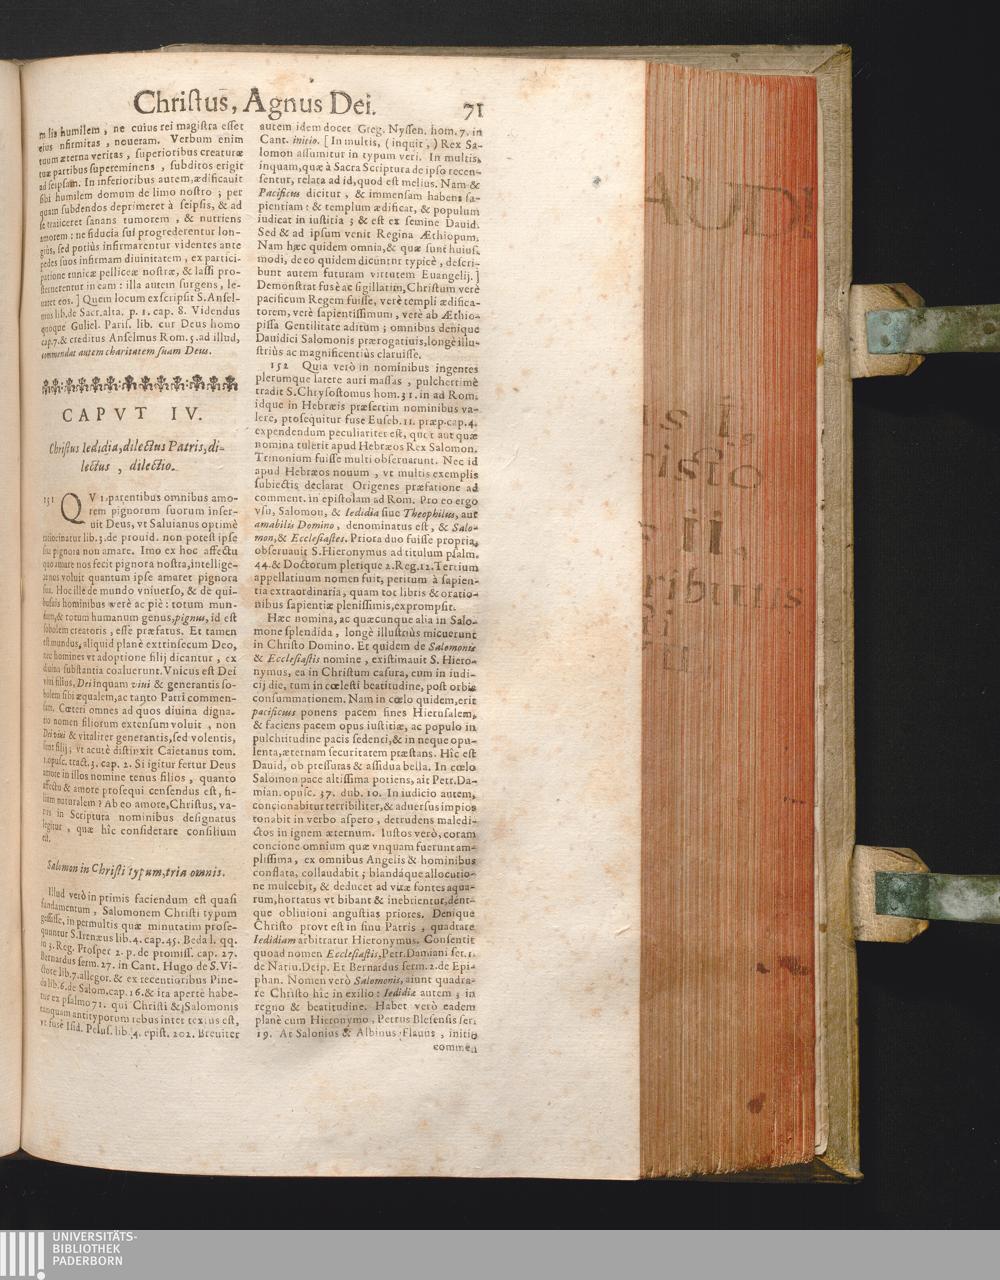 Christus, Agnus Dei.
71
humilem, ne cuius rei magistra esset
eius infirmitas, noueram. Verbum enim
tuum æterna veritas, superioribus creaturæ
tuæ partibus supereminens, subditos erigit
ad seipsam. In inferioribus autem, ædificauit
sibi humilem domum de limo nostro; per
quam subdendos deprimeret à seipsis, & ad
se traiiceret sanans tumorem, & nutriens
amorem: ne fiducia sui progrederentur lon-
giùs, sed potiùs infirmarentur videntes ante
pedes suos infirmam diuinitatem, ex partici-
patione tunicæ pelliceæ nostræ, & lassi pro-
sternerentur in eam: illa autem surgens, le-
uaret eos.] Quem locum exscripsit S. Ansel-
mus lib. de Sacr. alta. p. 1. cap. 8. Videndus
quoque Guliel. Paris. lib. cur Deus homo
cap. 7. & creditus Anselmus Rom. 5. ad illud,
commendat autem charitatem suam Deus.
CAPVT IV.
Christus Iedidia, dilectus Patris, di-
lectus, dilectio.
151 QVi parentibus omnibus amo-
rem pignorum suorum inser-
uit Deus, vt Saluianus optimè
ratiocinatur lib. 3. de prouid. non potest ipse
sua pignora non amare. Imo ex hoc affectu
quo amare nos fecit pignora nostra, intellige-
re nos voluit quantum ipse amaret pignora
sua. Hoc ille de mundo vniuerso, & de qui-
busuis hominibus verè ac piè: totum mun-
dum, & totum humanum genus, pignus, id est
sobolem creatoris, esse præfatus. Et tamen
est mundus, aliquid planè extrinsecum Deo,
nec homines vt adoptione filij dicantur, ex
diuina substantia coaluerunt. Vnicus est Dei
viui filius, Dei inquam viui & generantis so-
bolem sibi æqualem, ac tanto Patri commen-
sam. Cæteri omnes ad quos diuina digna-
tio nomen filiorum extensum voluit, non
Dei viui & vitaliter generantis, sed volentis,
sunt filij; vt acutè distinxit Caietanus tom.
1. opusc. tract. 3. cap. 2. Si igitur fertur Deus
amore in illos nomine tenus filios, quanto
affectu & amore prosequi censendus est, fi-
lium naturalem? Ab eo amore, Christus, va-
riis in Scriptura nominibus designatus
legitur, quæ hîc considerare consilium
est.
Salomon in Christi typum, tria omnis.
Illud verò in primis faciendum est quasi
fundamentum, Salomonem Christi typum
gessisse, in permultis quæ minutatim prose-
quuntur S. Irenæus lib. 4. cap. 45. Beda l. qq.
in 3. Reg. Prosper 2. p. de promiss. cap. 27.
Bernardus serm. 27. in Cant. Hugo de S. Vi-
ctore lib. 7. allegor. & ex recentioribus Pine-
da lib. 6. de Salom. cap. 16. & ita apertè habe-
tur ex psalmo 71. qui Christi & Salomonis
tanquam antitypotum rebus inter textus est,
vt fusè Isid. Pelus. lib. 4. epist. 202. Breuiter
autem idem docet Greg. Nyssen. hom. 7. in
Cant. initio. [In multis, (inquit,) Rex Sa-
lomon assumitur in typum veri. In multis,
inquam, quæ à Sacra Scriptura de ipso recen-
sentur, relata ad id, quod est melius. Nam &
Pacificus dicitur, & immensam habens sa-
pientiam: & templum ædificat, & populum
iudicat in iustitia; & est ex semine Dauid.
Sed & ad ipsum venit Regina Æthiopum.
Nam hæc quidem omnia, & quæ sunt huius-
modi, de eo quidem dicuntur typicè, descri-
bunt autem futuram virtutem Euangelij.]
Demonstrat fusè ac sigillatim, Christum verè
pacificum Regem fuisse, verè templi ædifica-
torem, verè sapientissimum, verè ab Æthio-
pissa Gentilitate aditum; omnibus denique
Dauidici Salomonis prærogatiuis, longè illu-
striùs ac magnificentiùs claruisse.
152 Quia verò in nominibus ingentes
plerumque latere auri massas, pulcherrimè
tradit S. Chrysostomus hom. 31. in ad Rom.
idque in Hebræis præsertim nominibus va-
lere, prosequitur fuse Euseb. 11. præp. cap. 4.
expendendum peculiariter est, quot aut quæ
nomina tulerit apud Hebræos Rex Salomon.
Trinonium fuisse multi obseruarunt. Nec id
apud Hebræos nouum, vt multis exemplis
subiectis declarat Origenes præfatione ad
comment. in epistolam ad Rom. Pro eo ergo
vsu, Salomon, & Iedidia siue Theophilus, aut
amabilis Domino, denominatus est, & Salo-
mon, & Ecclesiastes. Priora duo fuisse propria,
obseruauit S. Hieronymus ad titulum psalm.
44. & Doctorum plerique 2. Reg. 12. Tertium
appellatiuum nomen fuit, petitum à sapien-
tia extraordinaria, quam tot libris & oratio-
nibus sapientiæ plenissimis, exprompsit.
Hæc nomina, ac quæcunque alia in Salo-
mone splendida, longè illustriùs micuerunt
in Christo Domino. Et quidem de Salomonis
& Ecclesiastis nomine, existimauit S. Hiero-
nymus, ea in Christum casura, cum in iudi-
cij die, tum in cœlesti beatitudine, post orbis
consummationem. Nam in cœlo quidem, erit
pacificus ponens pacem fines Hierusalem,
& faciens pacem opus iustitiæ, ac populo in
pulchritudine pacis sedenci, & in neque opu-
lenta, æternam securitatem præstans. Hîc est
Dauid, ob pressuras & assidua bella. In cœlo
Salomon pace altissima potiens, ait Petr. Da-
mian. opusc. 37. dub. 10. In iudicio autem,
concionabitur terribiliter, & aduersus impios
tonabit in verbo aspero, detrudens maledi-
ctos in ignem æternum. Iustos verò, coram
concione omnium quæ vnquam fuerunt am-
plissima, ex omnibus Angelis & hominibus
conflata, collaudabit; blandáque allocutio-
ne mulcebit, & deducet ad vitæ fontes aqua-
rum, hortatus vt bibant & inebrientur, dént-
que obliuioni angustias priores. Denique
Christo provt est in sinu Patris, quadrare
Iedidiam arbitratur Hieronymus. Consentit
quoad nomen Ecclesiastis, Petr. Damiani ser. 1.
de Natiu. Deip. Et Bernardus serm. 2. de Epi-
phan. Nomen verò Salomonis, aiunt quadra-
re Christo hîc in exilio: Iedidiæ autem; in
regno & beatitudine. Habet verò eadem
planè cum Hieronymo, Petrus Blesensis ser.
19. At Salonius & Albinus Flauus, initio
commen
AUD
us i.
risto
ii.
ributis
UNIVERSITÄTS-
BIBLIOTHEK
PADERBORN